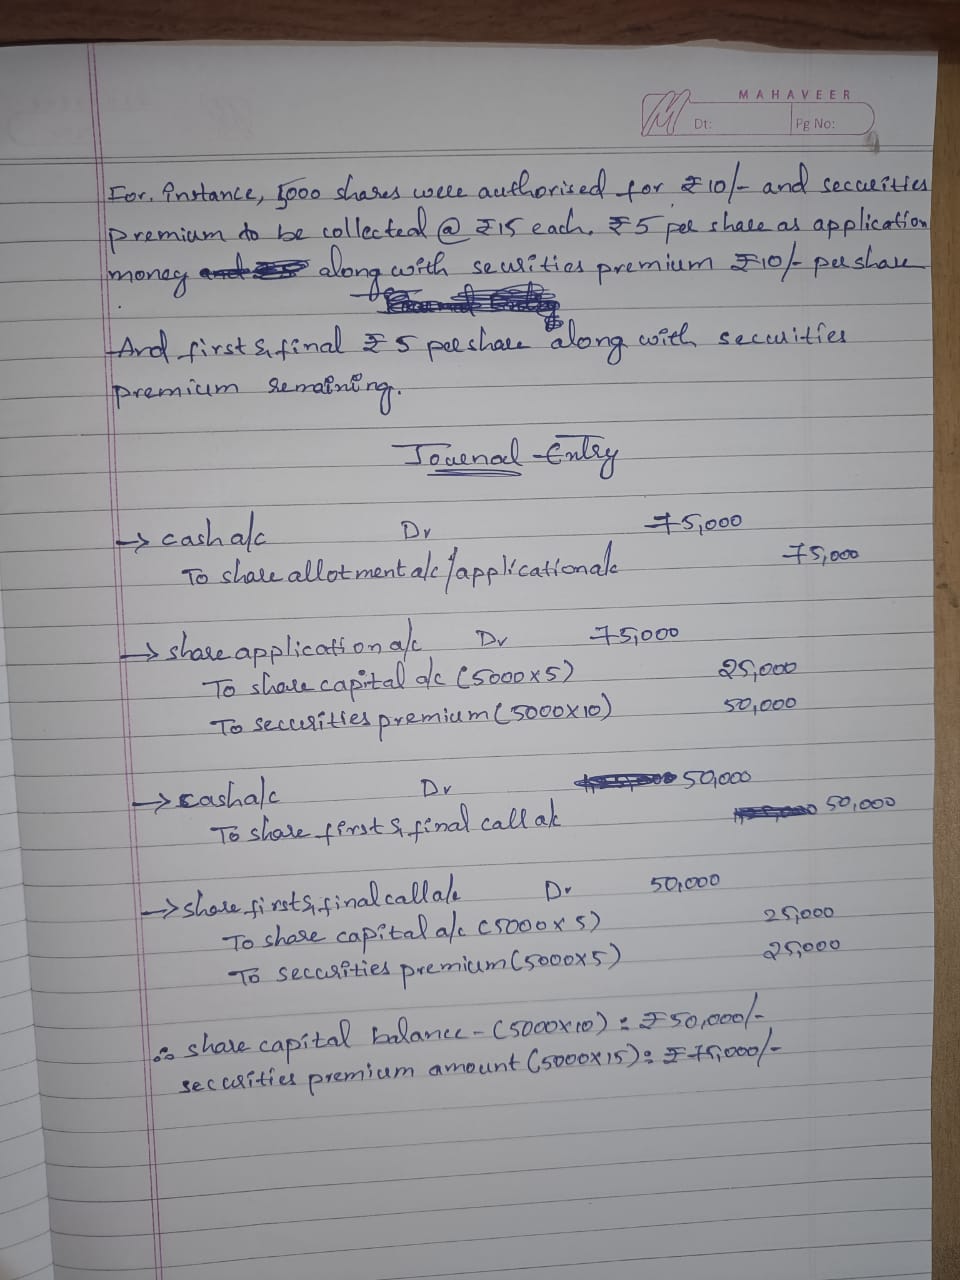 MAHAVEER
Dt:
Pg No:
For. instance, 5000 shares were authorised for ₹10/- and securities
premium to be collected @ ₹15 each. ₹5 per share as application
money along with seurities premium ₹10/- per share
And first & final ₹5 per share along with securities
premium remaining.
Journal Entry
→ cash a/c Dr 75,000
To share allotment a/c / application a/c 75,000
→ share application a/c Dr 75,000
To share capital a/c (5000x5) 25,000
To securities premium (5000x10) 50,000
→ cash a/c Dr 50,000
To share first & final call a/c 50,000
→ share first & final call a/c Dr 50,000
To share capital a/c (5000x5) 25,000
To securities premium (5000x5) 25,000
∴ share capital balance - (5000x10) : ₹50,000/-
securities premium amount (5000x15) : ₹75,000/-